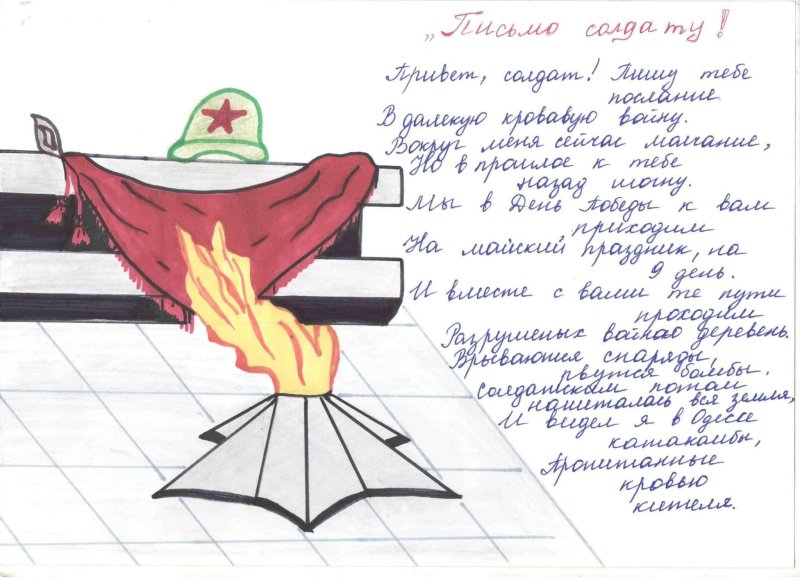 „Письмо солдату!
Привет, солдат! Пишу тебе
послание
В далекую кровавую войну.
Вокруг меня сейчас молчание,
Но в прошлое к тебе
назад шагну.
Мы в День Победы к вам
приходим
На майский праздник, на
9 день.
И вместе с вами те пути
проходим
Разрушеных войною деревень.
Врываются снаряды,
рвутся бомбы.
Солдатским потом
напиталась вся земля,
И видел я в Одессе
катакомбы,
Пропитанные
кровью
кителя.